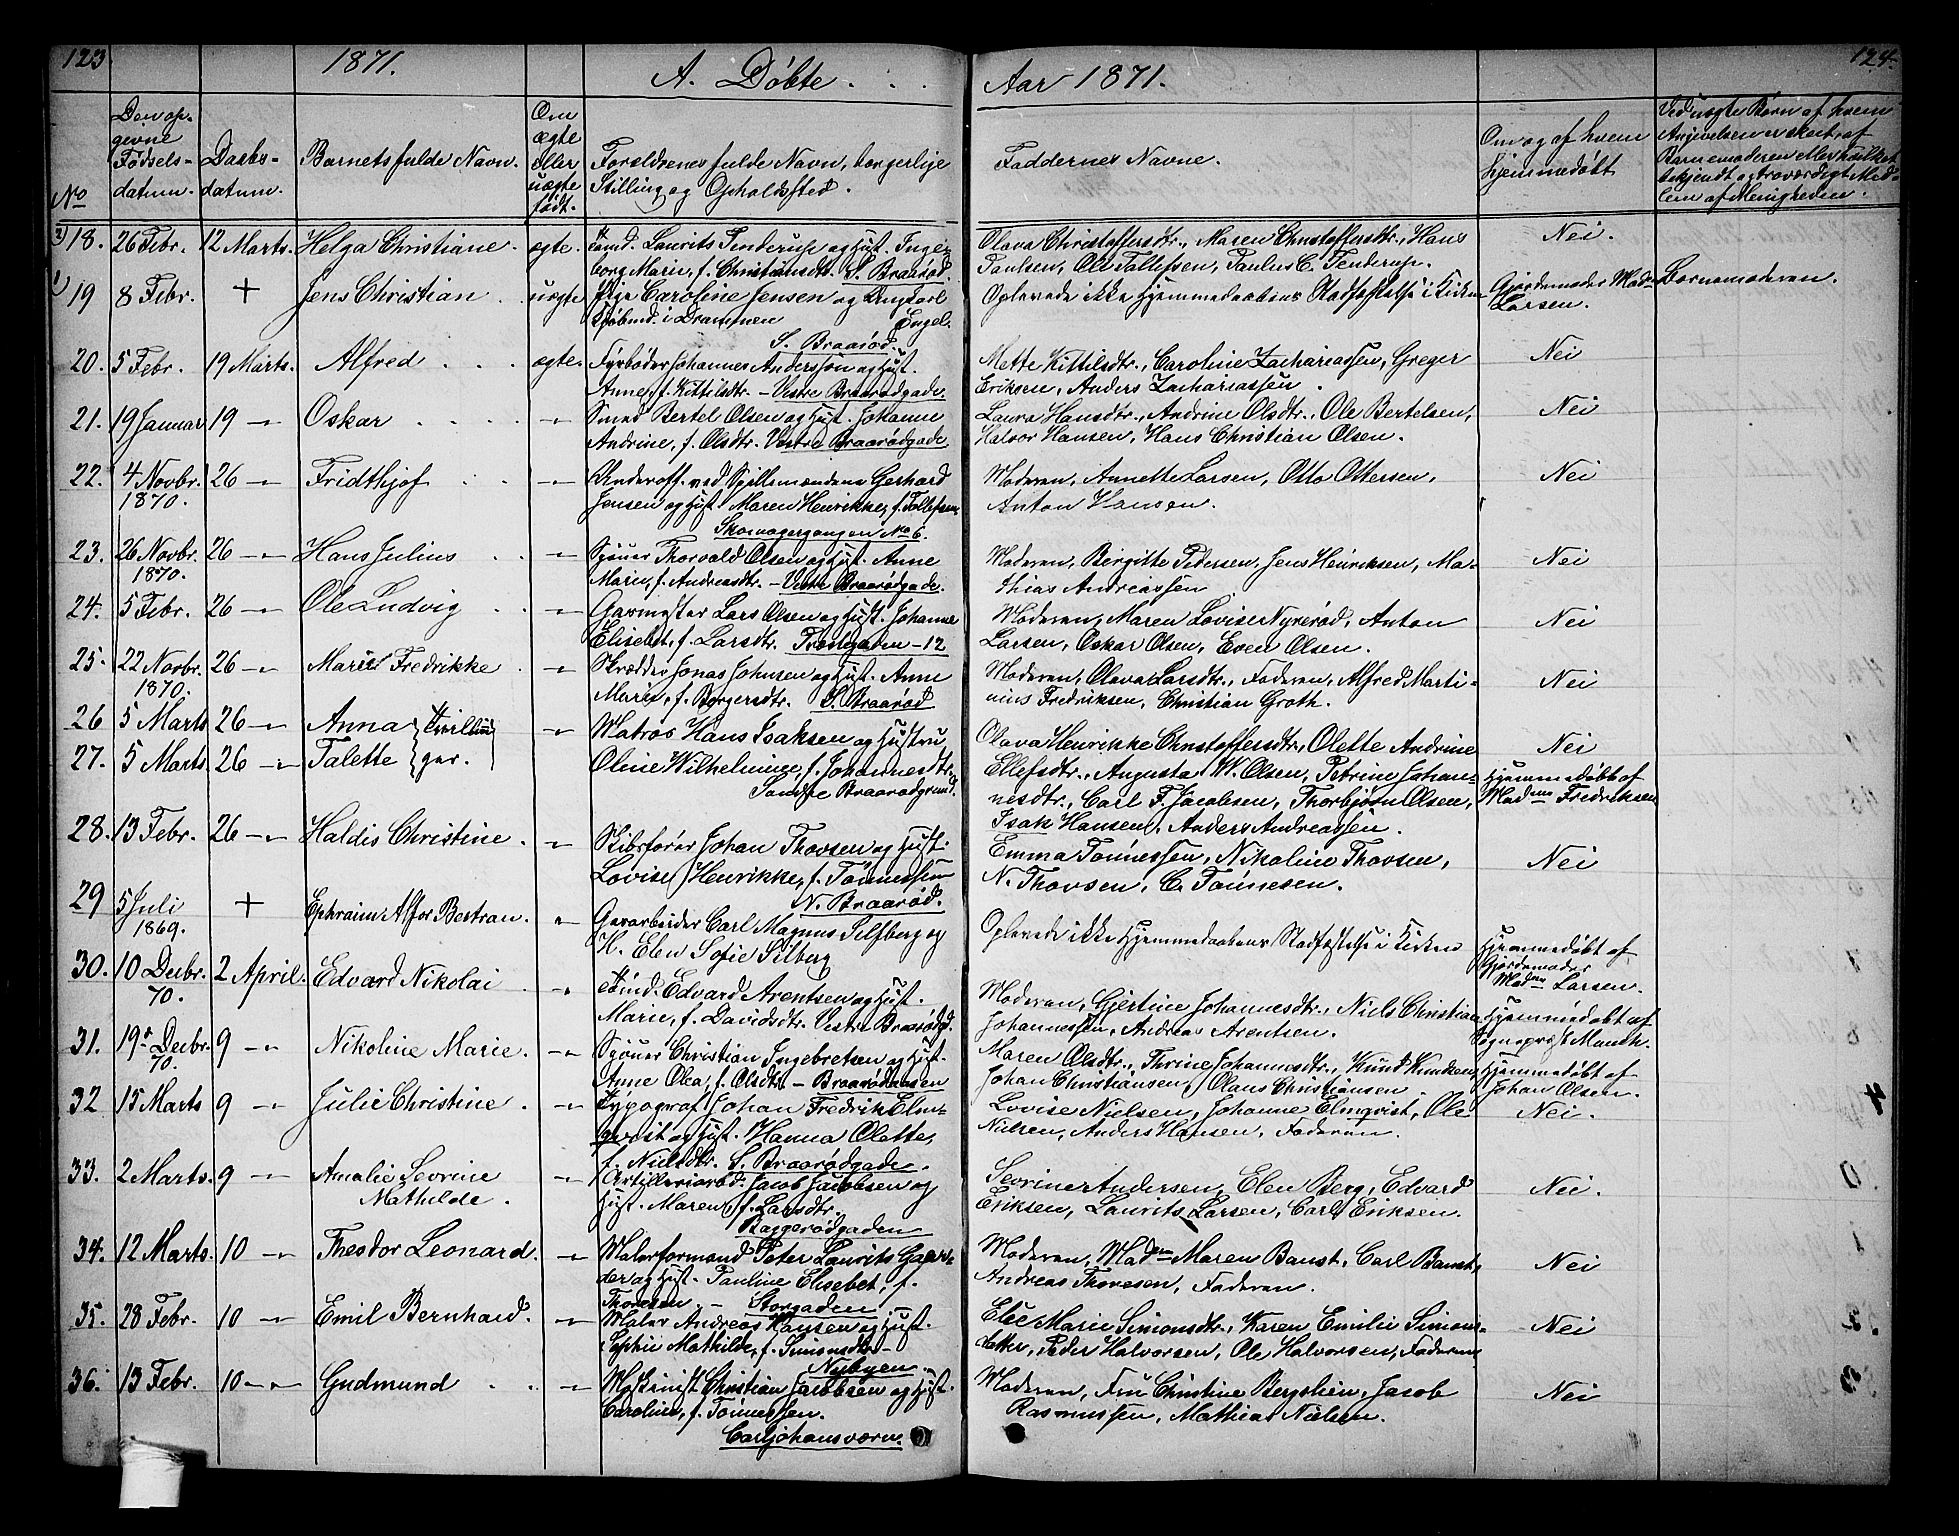 123 1871. A. Døbte . . . Aar 1871. 124.
No
Den opgivne Fødselsdatum.
Daabsdatum.
Barnets fulde Navn.
Om ægte eller uægte født.
Forældrenes fulde Navn, borgerlige Stilling og Opholdssted.
Faddernes Navne.
Om og af hvem hjemmedøbt
Ved uægte Børn af hvem Angivelsen er skeet, af Barnemoderen eller hvilket bekjendt og troværdigt Medlem af Menigheden.
2) 18. 26 Febr. 12 Marts. Helga Christiane. ægte.
Laurits Tenderup og Hust. Ingeborg Marie, f. Christiansdtr. S. Braarød.
Olava Christoffersdtr., Maren Christoffersdtr., Hans
Paulsen, Ole Tollefsen, Paulus C. Tenderup.
Nei.
1) 19 8 Febr. + Jens Christian . uægte
Pige Caroline Jensen og Ungkarl
Kjøbmd. i Drammen Engel.
S. Braarød.
Oplevede ikke Hjemmedaabens Stadfæstelse i Kirken
Gjordemoder Mad.
Larsen.
Barnemoderen.
20. 5 Febr. 19 Marts. Alfred . . . ægte.
Fyrbøder Johannes Anderssøn og Hust.
Anne, f. Kittilsdtr. – Vestre Braarødgade.
Mette Kittilsdtr., Caroline Zachariassen, Greger
Eriksen, Anders Zachariassen.
Nei
21. 19 Januar 19 –"– Oskar . . . . –"–
Smed Bertel Olsen og Hust. Johanne
Andrine, f. Olsdtr. Vestre Braarødgade
Laura Hansdtr., Andrine Olsdtr., Ole Bertelsen,
Halvor Hansen, Hans Christian Olsen.
Nei
22. 4 Novbr. 1870. 26 –"– Fridthjof . . –"–
Underoff. ved Spillemændene Gerhard
Jensen og Hust. Maren Henrikke, f. Tollefsen.
No 6.
Moderen, Annette Larsen, Otto Ottersen,
Anton Hansen.
Nei
23. 26 Novbr. 1870. 26 –"– Hans Julius . . –"–
Sjøuer Thorvald Olsen og Hust. Anne
Marie, f. Andreasdtr. – Vestre Braarødgade.
Moderen, Birgitte Pedersen, Jens Henriksen, Mathias Andreassen
Nei
24. 5 Febr. 26 –"– Ole Ludvig . . –"–
Garmester Lars Olsen og Hust. Johanne
Elisebet, f. Larsdtr. – 12
Moderen, Maren Lovise Nyrerød, Anton
Larsen, Oskar Olsen, Even Olsen.
Nei
25. 22 Novbr. 1870. 26 –"– Marie Fredrikke . –"–
Skrædder Jonas Johnsen og Hust. Anne
Marie, f. Borgersdtr. S. Braarød
Moderen, Olava Larsdtr., Faderen, Alfred Martinius Fredriksen, Christian Groth.
Nei
26 5 Marts 26 –"– Anna } Tvillin –"–
27. 5 Marts 26 –"– Talette } ger.
Matros Hans Isaksen og Hustru
Oline Wilhelmine, f. Johannesdtr.
Braarødgrund.
Olava Henrikke Christoffersdtr., Olette Andrine
Ellefsdtr., Augusta W. Olsen, Petrine Johannesdtr., Carl F. Jacobsen, Thorbjørn Olsen,
Isak Hansen, Anders Andreassen.
Nei
Hjemmedøbt af
Madme Fredriksen
28. 13 Febr. 26 –"– Haldis Christine . –"–
Skibsfører Johan Thovsen og Hust.
Lovise Henrikke, f. Tønnessen
N. Braarød.
Emma Tønnessen, Nikoline Thovsen,
N. Thovsen, C. Tønnesen.
Nei
29 5 Juli 1869. + Ephraim Alfor Bertran. "
Gararbeider Carl Magnus Silfberg og
H. Elen Sofie Silberg
Oplevede ikke Hjemmedaabens Stadfæstelse i Kirken
Hjemmedøbt af
Gjordemoder
Madme Larsen.
30. 10 Decbr. 70. 2 April. Edvard Nikolai . "
Edvard Arentsen og Hust.
Marie, f. Davidsdtr. Vestre Braarødgd.
Moderen, Gjertine Johannesdtr., Niels Christian
Johannessen, Andreas Arentsen.
Hjemmedøbt af
Sogneprest Munch.
31. 19 Decbr. 70. 9 –"– Nikoline Marie. –"–
Sjøuer Christian Ingebretsen og Hust.
Anne Olea, f. Olsdtr. – Braarødaasen
Maren Olsdtr., Thrine Johannesdtr., Knud Knudsen,
Johan Christiansen, Olaus Christiansen
Hjemmedøbt af
Johan Olsen.
32 15 Marts 9 –"– Julie Christine . –"–
Typograf Johan Fredrik Elmqvist og Hust. Hanna Olette,
f. Nielsdtr. S. Braarødgade.
Lovise Nielsen, Johanne Elmqvist, Ole
Nielsen, Anders Hansen, Faderen.
Nei.
33. 2 Marts. 9 –"– Amalie Sevrine
Mathilde . –"–
Artilleriarbd. Jacob Jacobsen og
Hust. Maren, f. Larsdtr.
Baggerødgaden
Sevrine Andersen, Elen Berg, Edvard
Eriksen, Laurits Larsen, Carl Eriksen.
Nei.
34. 12 Marts. 10 –"– Theodor Leonard. –"–
Malerformand Peter Laurits Gaarder og Hust. Pauline Elisebet, f.
Thoresen – Storgaden
Moderen, Madme Maren Banst, Carl Banst,
Andreas Thoresen, Faderen.
Nei
35. 28 Febr. 10 –"– Emil Bernhard. –"–
Maler Andreas Hansen og Hust.
Sophie Mathilde, f. Simonsdtr. –
Nybyen.
Else Marie Simonsdtr., Karen Emilie Simonsdatter, Peder Halvorsen, Ole Halvorsen, Faderen.
Nei
36. 13 Febr. 10 –"– Gudmund . . –"–
Maskinist Christian Jacobsen og Hust.
Caroline, f. Tønnessen.
Carljohansværn.
Moderen, Fru Christine Bergslien, Jacob
Rasmussen, Mathias Nielsen.
Nei